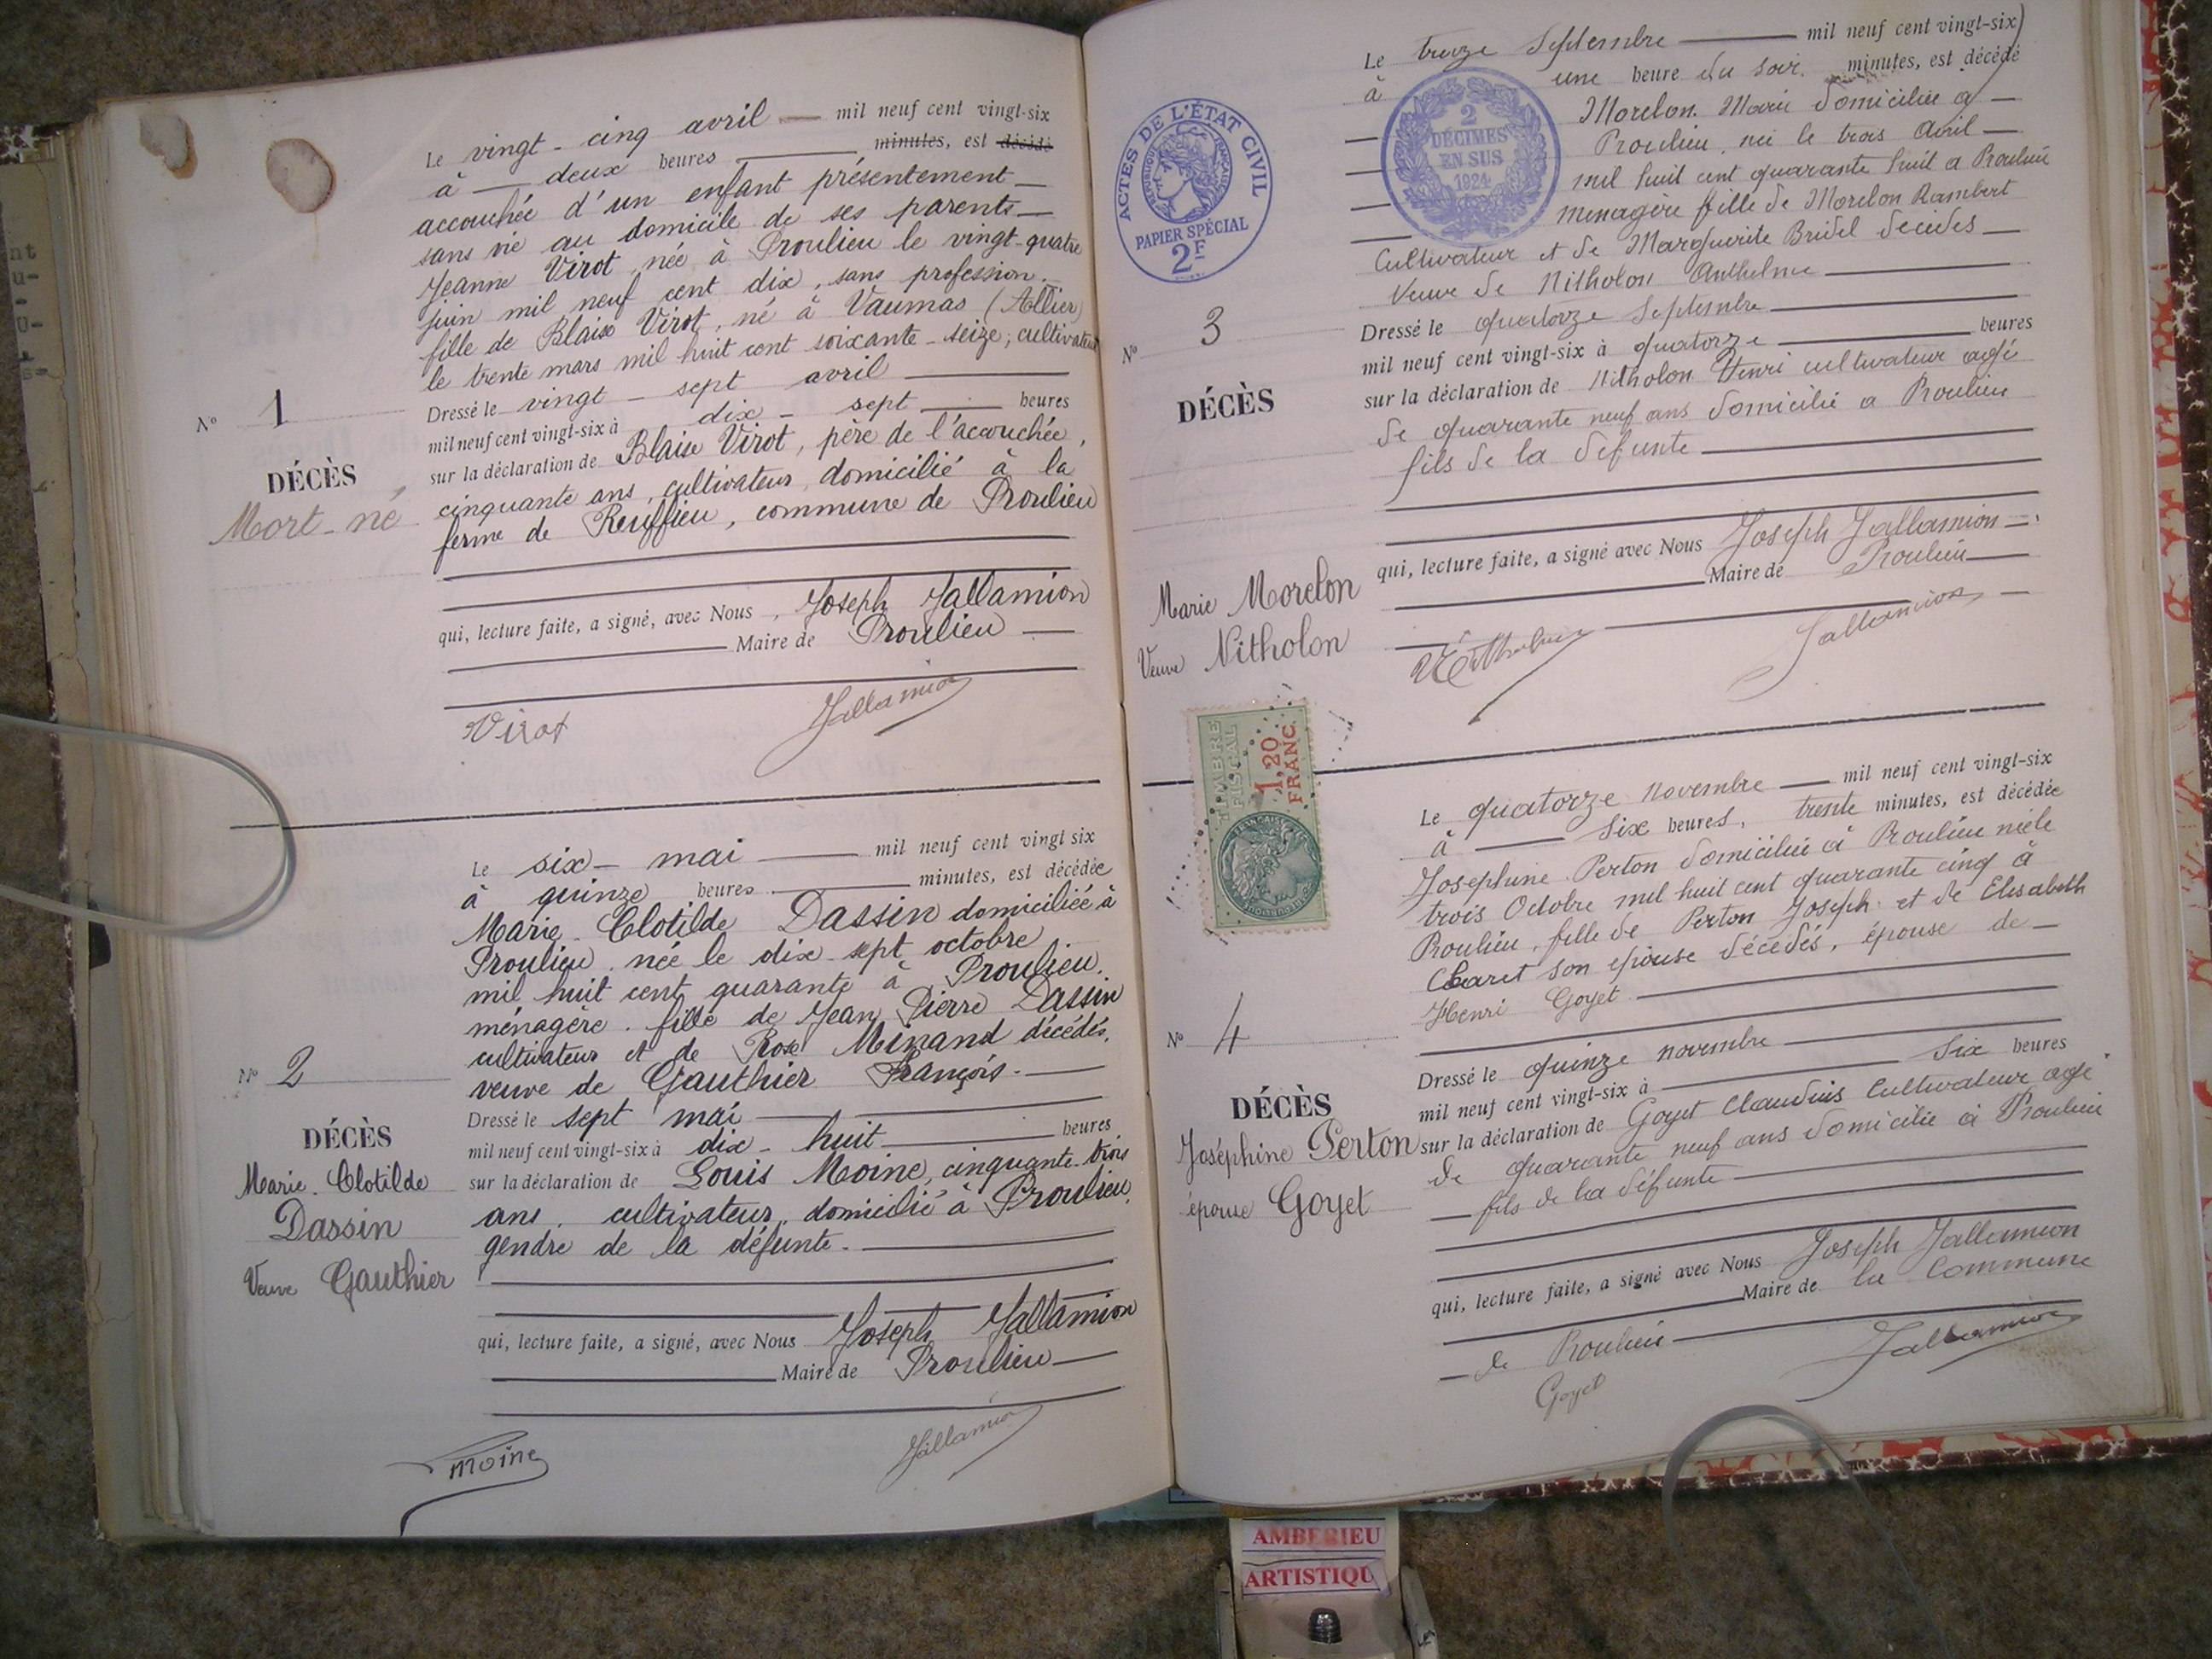 Le vingt-cinq avril — mil neuf cent vingt-six
à — deux heures — minutes, est décédé
accouchée d'un enfant présentement —
sans vie au domicile de ses parents —
Jeanne Virot, née à Proulieu le vingt-quatre
juin mil neuf cent dix, sans profession.
fille de Blaise Virot, né à Vaumas (Allier)
le trente mars mil huit cent soixante-seize, cultivateur
Dressé le vingt-sept avril
mil neuf cent vingt-six à dix-sept heures
sur la déclaration de Blaise Virot, père de l'accouchée,
cinquante ans, cultivateur, domicilié à la
ferme de Reuffieu, commune de Proulieu
qui, lecture faite, a signé, avec Nous, Joseph Jallamion
Maire de Proulieu —
Virot Jallamion
No 1
DÉCÈS
Mort-né
Le six — mai — mil neuf cent vingt six
à quinze heures — minutes, est décédée
Marie-Clotilde Dassin domiciliée à
Proulieu, née le dix-sept octobre
mil huit cent quarante à Proulieu.
ménagère. fille de Jean Pierre Dassin
cultivateur et de Rose Minand décédés.
veuve de Gauthier François. —
Dressé le sept mai —
mil neuf cent vingt-six à dix-huit — heures
sur la déclaration de Louis Moine, cinquante-trois
ans, cultivateur, domicilié à Proulieu,
gendre de la défunte. —
qui, lecture faite, a signé, avec Nous Joseph Jallamion
Maire de Proulieu —
Moine Jallamion
No 2
DÉCÈS
Marie-Clotilde
Dassin
Veuve Gauthier
Le treize Septembre — mil neuf cent vingt-six
à une heure du soir. minutes, est décédé
Morelon Marie domiciliée à —
Proulieu, née le trois Avril —
mil huit cent quarante huit a Proulieu
menagère fille de Morelon Rambert
Cultivateur et de Marguerite Bridel décédés —
Veuve de Nitholon Anthelme —
Dressé le quatorze Septembre —
mil neuf cent vingt-six à quatorze — heures
sur la déclaration de Nitholon Henri cultivateur agé
de quarante neuf ans domicilié a Proulieu
fils de la défunte —
qui, lecture faite, a signé avec Nous Joseph Jallamion —
Maire de Proulieu —
Jallamion
ACTES DE L'ÉTAT CIVIL
RÉPUBLIQUE FRANÇAISE
PAPIER SPÉCIAL
2F
2
DÉCIMES
EN SUS
1924
No 3
DÉCÈS
Marie Morelon
Veuve Nitholon
TIMBRE
FISCAL
1,20
FRANC
Le quatorze novembre — mil neuf cent vingt-six
à — six heures, trente minutes, est décédée
Josephine Perton domiciliée à Proulieu née le
trois Octobre mil huit cent quarante cinq à
Proulieu, fille de Perton Joseph et de Elisabeth
Charet son épouse décédés, épouse de —
Henri Goyet —
Dressé le quinze novembre —
mil neuf cent vingt-six à — six heures
sur la déclaration de Goyet Claudius Cultivateur agé
de quarante neuf ans domicilié à Proulieu
— fils de la défunte —
qui, lecture faite, a signé avec Nous Joseph Jallamion
Maire de la Commune
— de Proulieu —
Goyet Jallamion
No 4
DÉCÈS
Joséphine Perton
épouse Goyet
AMBERIEU
ARTISTIQU